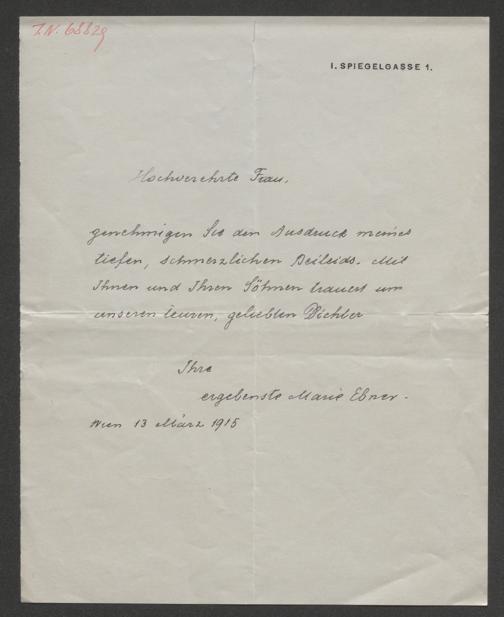 I.N. 68829
I. SPIEGELGASSE 1.
Hochverehrte Frau,
genehmigen Sie den Ausdruck meines
tiefen, schmerzlichen Beileids. Mit
Ihnen und Ihren Söhnen trauert um
unseren teuren, geliebten Dichter
Ihre
ergebenste Marie Ebner.
Wien 13 März 1915